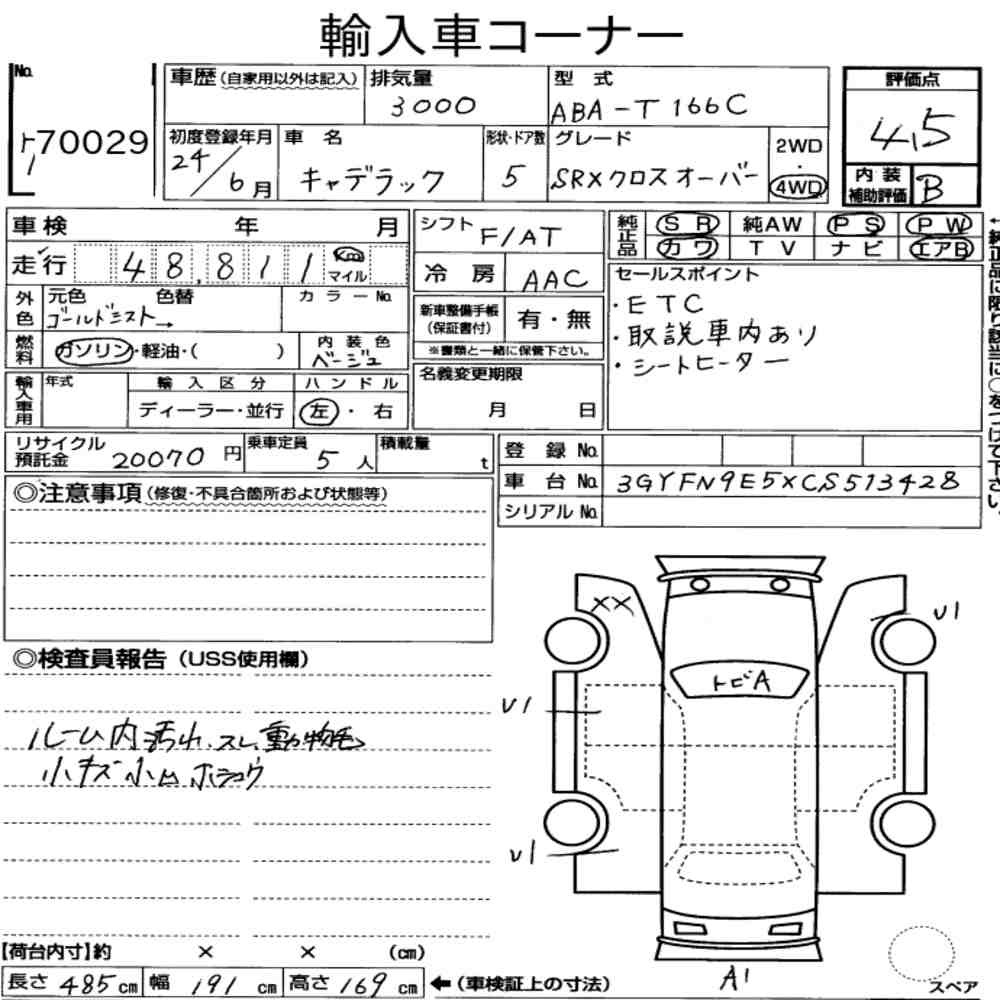 輸入車コーナー
No.
ト1 70029
車歴 (自家用以外は記入)
排気量
3000
型式
ABA-T166C
評価点
4.5
初度登録年月
24/6月
車名
キャデラック
形状・ドア数
5
グレード
SRXクロスオーバー
2WD
・
4WD
内装
補助評価
B
車検 年 月
走行 48,811 km マイル
シフト
F/AT
冷房
AAC
純正品
SR 純AW PS PW
カワ TV ナビ エアB
←純正品に限り該当に○をつけて下さい。
セールスポイント
・ETC
・取説車内あり
・シートヒーター
外色
元色 色替
ゴールドミスト→
カラーNo.
新車整備手帳
(保証書付)
有・無
※書類と一緒に保管下さい。
燃料
ガソリン・軽油・( )
内装色
ベージュ
輸入車用
年式
輸入区分
ディーラー・並行
ハンドル
左・右
名義変更期限
月 日
リサイクル
預託金 20070 円
乗車定員
5人
積載量
t
登録No.
車台No. 3GYFN9E5XCS513428
シリアルNo.
◎注意事項 (修復・不具合箇所および状態等)
◎検査員報告 (USS使用欄)
ルーム内汚れ、スレ、動物毛
小キズ小凹ホショウ
XX
U1
トビA
U1
U1
A1
【荷台内寸】約 × × (cm)
長さ 485 cm 幅 191 cm 高さ 169 cm ←(車検証上の寸法)
スペア